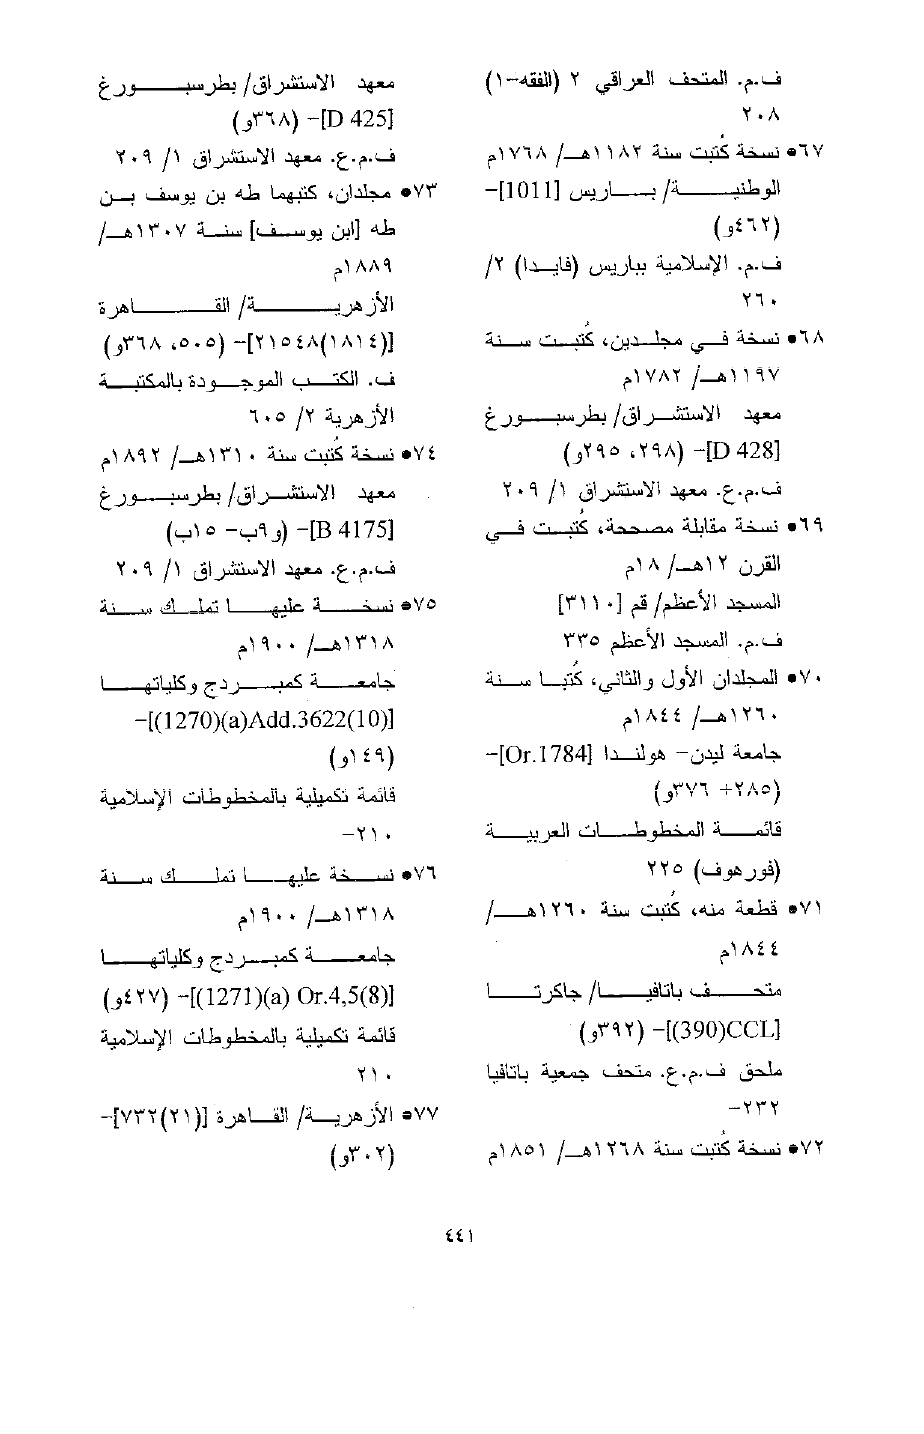 ف.م. المتحف العراقي ٢ (الفقه-١)
٢٠٨
٦٧• نسخة كُتبت سنة ١١٨٢هـ/ ١٧٦٨م
الوطنية/ باريس [1011]-
(٤٦٢و)
ف.م. الإسلامية بباريس (فايدا) ٢/
٢٦٠
٦٨• نسخة في مجلدين، كُتبت سنة
١١٩٧هـ/ ١٧٨٢م
معهد الاستشراق/ بطرسبورغ
[D 428]- (٢٩٨، ٢٩٥و)
ف.م.ع. معهد الاستشراق ١/ ٢٠٩
٦٩• نسخة مقابلة مصححة، كُتبت في
القرن ١٢هـ/ ١٨م
المسجد الأعظم/ قم [٣١١٠]
ف.م. المسجد الأعظم ٣٣٥
٧٠• المجلدان الأول والثاني، كُتبا سنة
١٢٦٠هـ/ ١٨٤٤م
جامعة ليدن- هولندا [Or.1784]-
(٢٨٥+ ٣٧٦و)
قائمة المخطوطات العربية
(فورهوف) ٢٢٥
٧١• قطعة منه، كُتبت سنة ١٢٦٠هـ/
١٨٤٤م
متحف باتافيا/ جاكرتا
[CCL(390)]- (٣٩٢و)
ملحق ف.م.ع. متحف جمعية باتافيا
٢٣٢-
٧٢• نسخة كُتبت سنة ١٢٦٨هـ/ ١٨٥١م
معهد الاستشراق/ بطرسبورغ
[D 425]- (٣٦٨و)
ف.م.ع. معهد الاستشراق ١/ ٢٠٩
٧٣• مجلدان، كتبهما طه بن يوسف بن
طه [ابن يوسف] سنة ١٣٠٧هـ/
١٨٨٩م
الأزهرية/ القاهرة
[(١٨١٤)٢١٥٤٨]- (٥٠٥، ٣٦٨و)
ف. الكتب الموجودة بالمكتبة
الأزهرية ٢/ ٦٠٥
٧٤• نسخة كُتبت سنة ١٣١٠هـ/ ١٨٩٢م
معهد الاستشراق/ بطرسبورغ
[B 4175]- (و٩ب- ١٥ب)
ف.م.ع. معهد الاستشراق ١/ ٢٠٩
٧٥• نسخة عليها تملك سنة
١٣١٨هـ/ ١٩٠٠م
جامعة كمبردج وكلياتها
[(1270)(a)Add.3622(10)]-
(١٤٩و)
قائمة تكميلية بالمخطوطات الإسلامية
٢١٠-
٧٦• نسخة عليها تملك سنة
١٣١٨هـ/ ١٩٠٠م
جامعة كمبردج وكلياتها
[(1271)(a) Or.4,5(8)]- (٤٢٧و)
قائمة تكميلية بالمخطوطات الإسلامية
٢١٠
٧٧• الأزهرية/ القاهرة [(٢١)٧٣٢]-
(٣٠٢و)
٤٤١